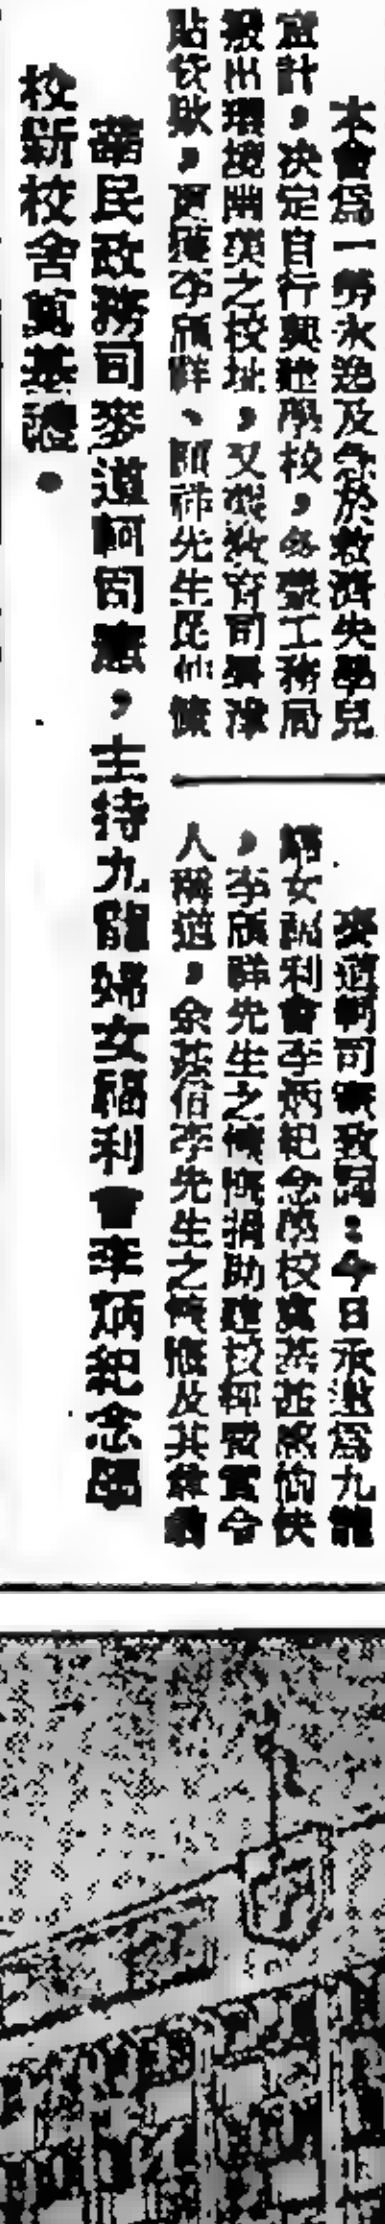 本會爲一勞永逸及急於救濟失學兒
宜計，決定自行興建學校，多蒙工務局
撥出環境幽美之校址，又獲教育司署準
貼
麥道軻司憲致詞：今日承邀爲九龍
婦女福利會李炳紀念學校奠基甚感愉快
，李 祥先生之慷慨捐助建校 費實令
人稱道，余甚信李先生之慷慨及其
華民政務司麥道軻司憲，主持九龍婦女福利會李炳紀念學
校新校舍奠基禮。